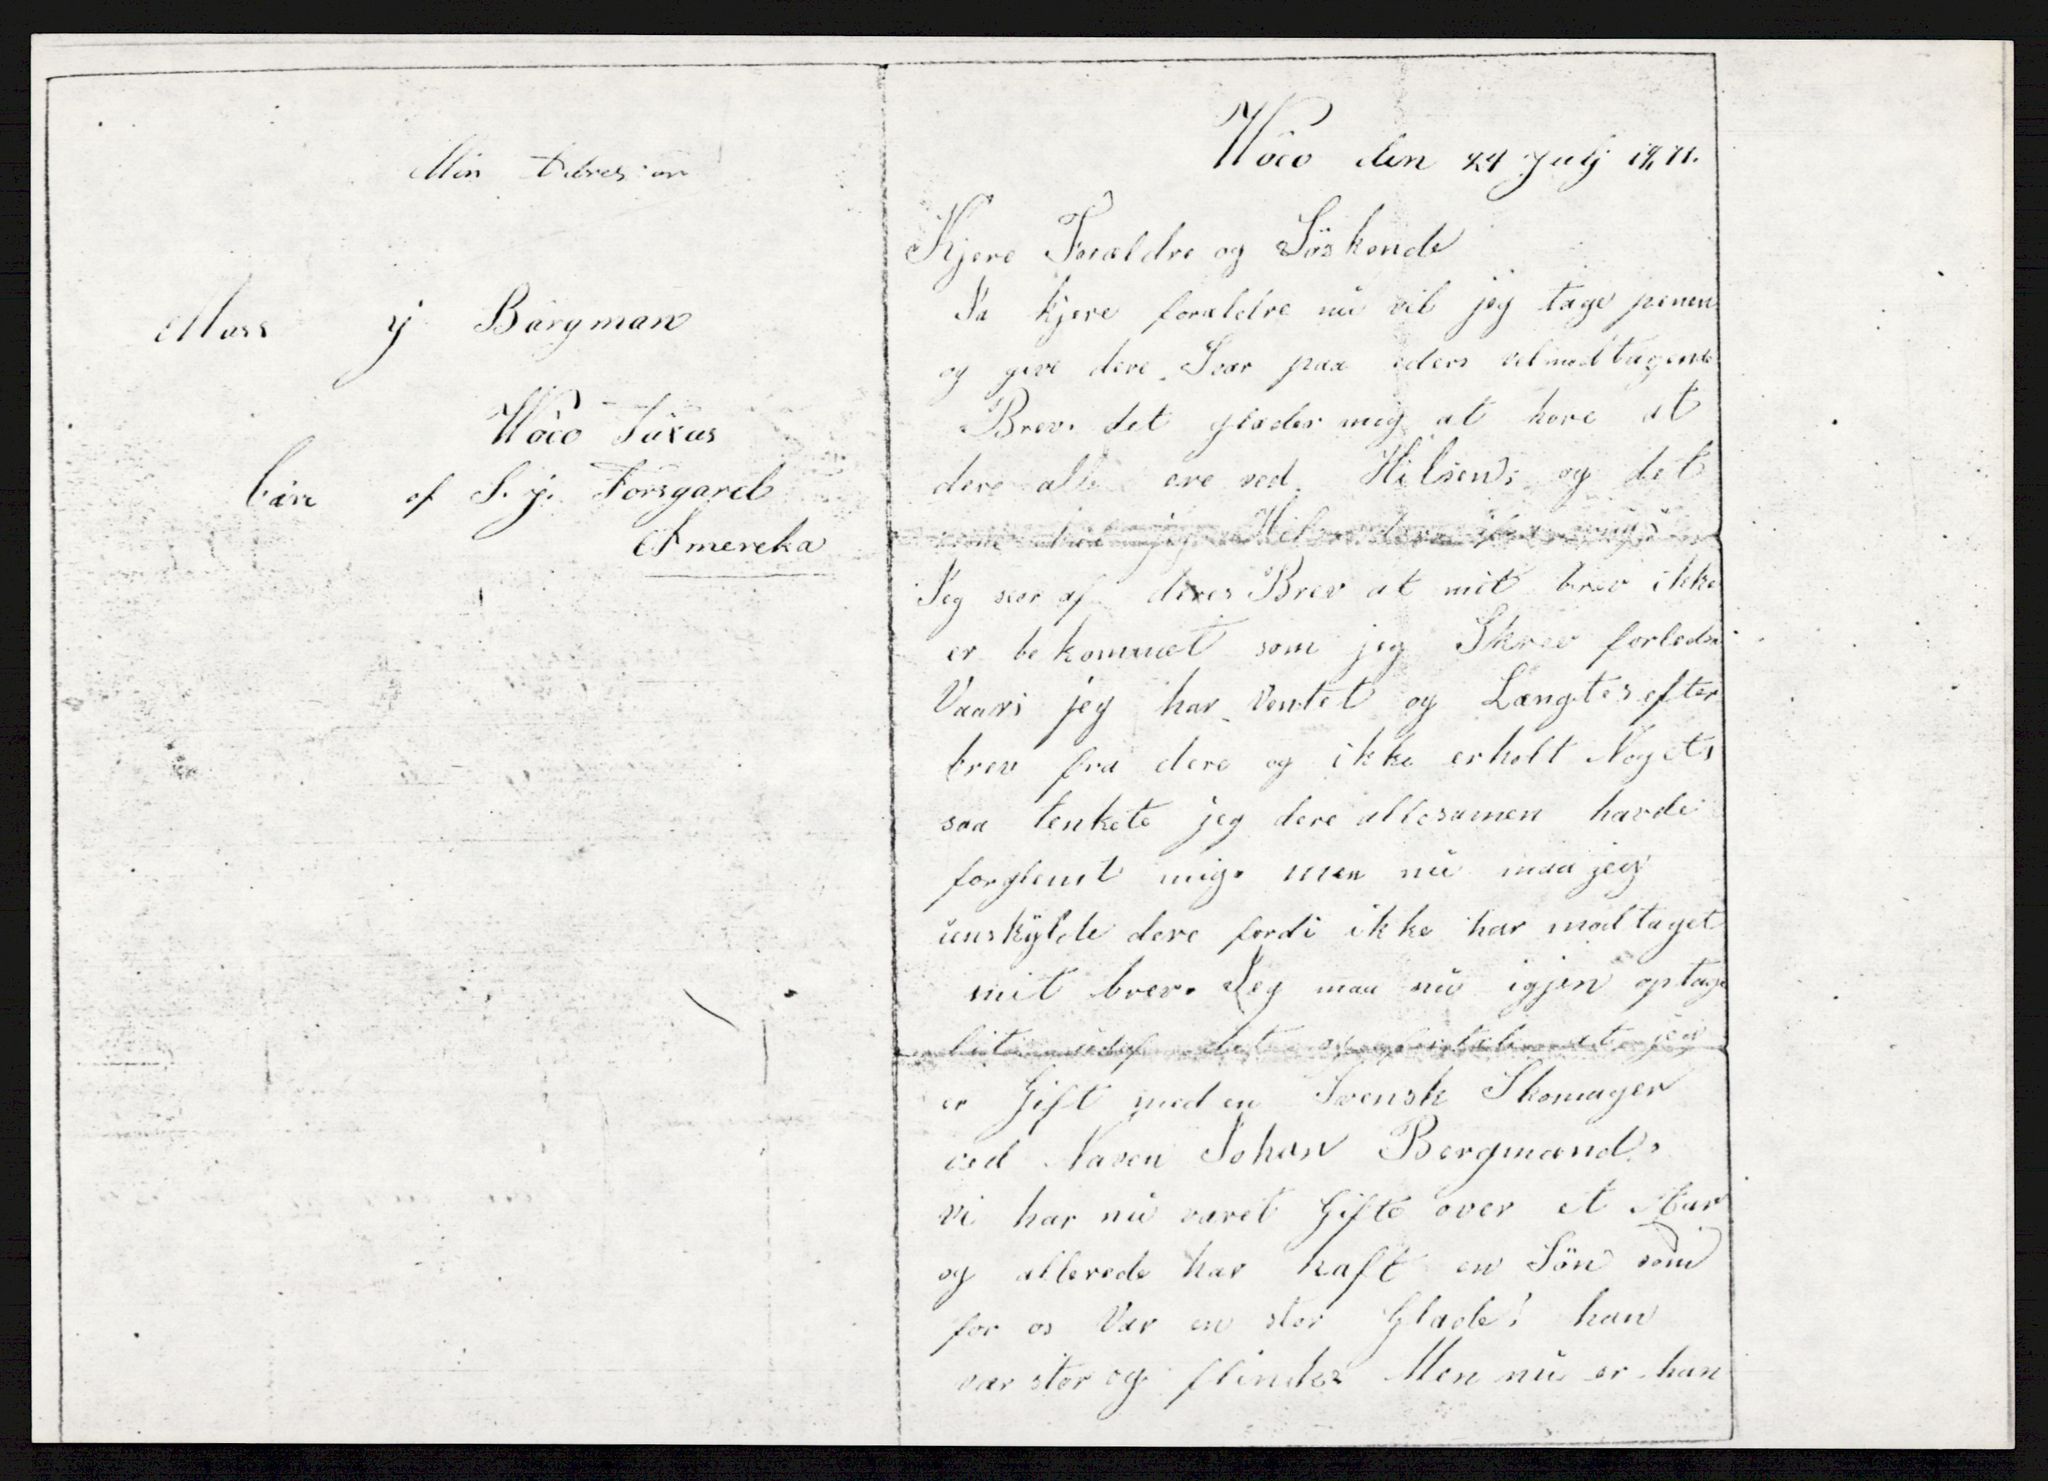 Min Adres er
Mass J Bargman
Waco Taxas
Care of S. J. Forsgard
Amereka
Waco den 24 July 1871.
Kjere Forældre og Söskende
Ja kjere forældre nu vil jeg tage penen
og give dere Svar paa eders velmodtagende
Brev. det glæder mig at høre at
dere alle ere ved Hilsen, og det
jeg Hilse dere
Jeg seer af deres Brev at mit brev ikke
er bekommet som jeg Skrev forleden
Vaar; jeg har Ventet og Længtes efter
brev fra dere og ikke erholt Noget,
saa tenkete jeg dere allesamen havde
forglemt mig. men nu maa jeg
unskylde dere fordi ikke har modtaget
mit brev. Jeg maa nu igjen optage
lit udaf det og at jeg
er Gift med en Svensk Skomager
ved Naven Johan Bergmand.
vi har nu varet Gifte over et Aar
og allerede har haft en Sön som
for os Var en stor Glæde! han
var stor og flink. Men nu er han